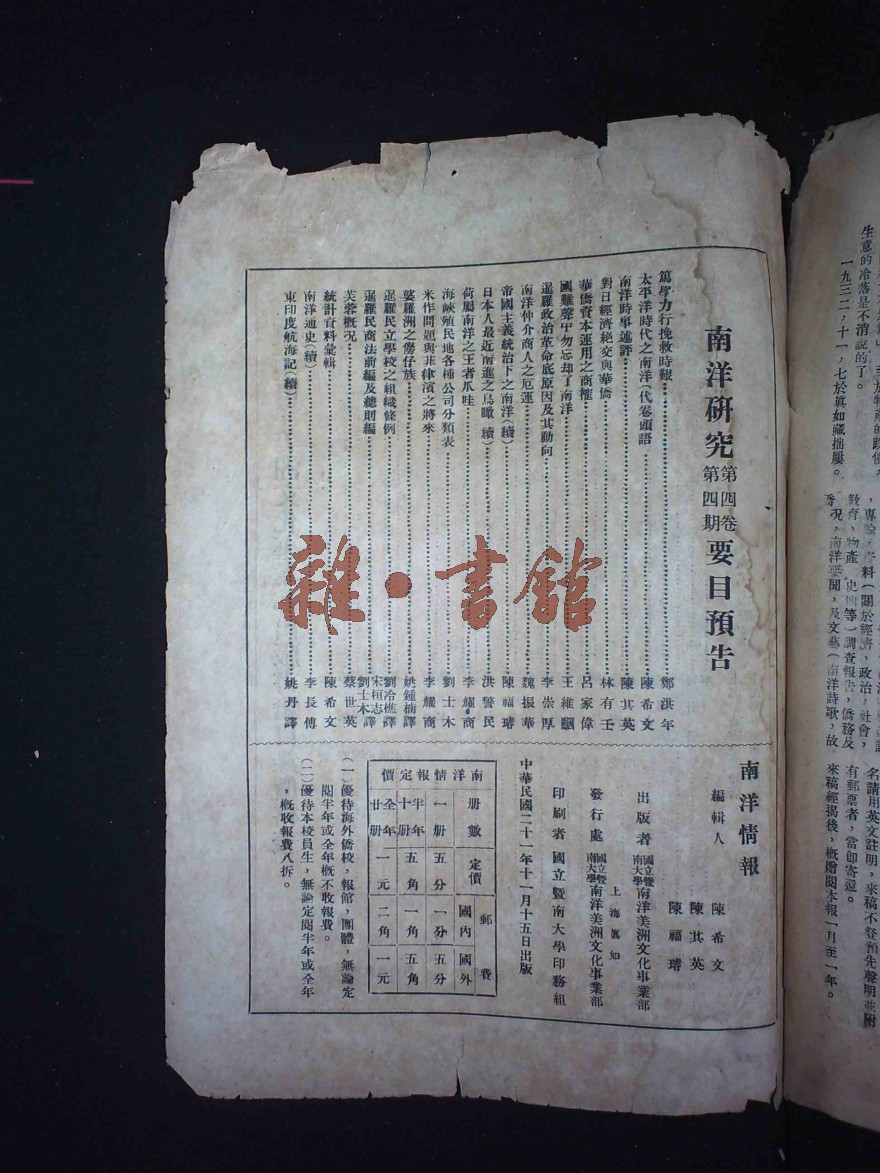 生意的冷落是不消說的了。
一九三二，十一，七於眞如藏拙廔。
教育，物產，史地等）調查報告，僑務及
況，南洋要聞，及文藝（南洋詩歌，故
名請用英文註明，來稿不登預先聲明並附
有郵票者，當卽寄還。
來稿經揭後，槪贈閱本報一月至一年。
南洋研究第四卷第四期要目預告
篤學力行挽救時艱 鄭洪年
太平洋時代之南洋（代卷頭語） 陳希文
南洋時事述評 陳其英
對日經濟絶交與華僑 林有壬
華僑資本運用之商榷 呂家偉
國難聲中勿忘却了南洋 王維駰
暹羅政治革命底原因及其動向 李崇厚
南洋仲介商人之厄運 魏振華
帝國主義統治下之南洋（續） 陳福璿
日本人最近南進之鳥瞰（續） 洪警民
荷屬南洋之王者爪哇 李耀商
海峽殖民地各種公司分類表 劉士木
米作問題與菲律濱之將來 李耀商
婆羅洲之僗仔族 姚鍾楠譯
暹羅民立學校之組織條例 劉冷樵譯
暹羅民商法前編及總則編 宋桓志 劉士木譯
芙蓉槪况 蔡世英
統計資料彙輯 陳希文
南洋通史（續） 李長傅
東印度航海記（續） 姚丹譯
南洋情報
編輯人
陳希文
陳其英
陳福璿
出版者 國立暨南大學南洋美洲文化事業部
上海眞如
發行處 國立暨南大學南洋美洲文化事業部
印刷者 國立暨南大學印務組
中華民國二十一年十一月十五日出版
南洋情報定價
册數 定價 郵費 國內 國外
一册 五分 一分 五分
半年十册 五角 一角 五角
全年廿册 一元 二角 一元
（一）優待海外僑校，報館，團體，無論定
閱半年或全年槪不收報費。
（二）優待本校員生，無論定閱半年或全年
，槪收報費八折。
雜·書館